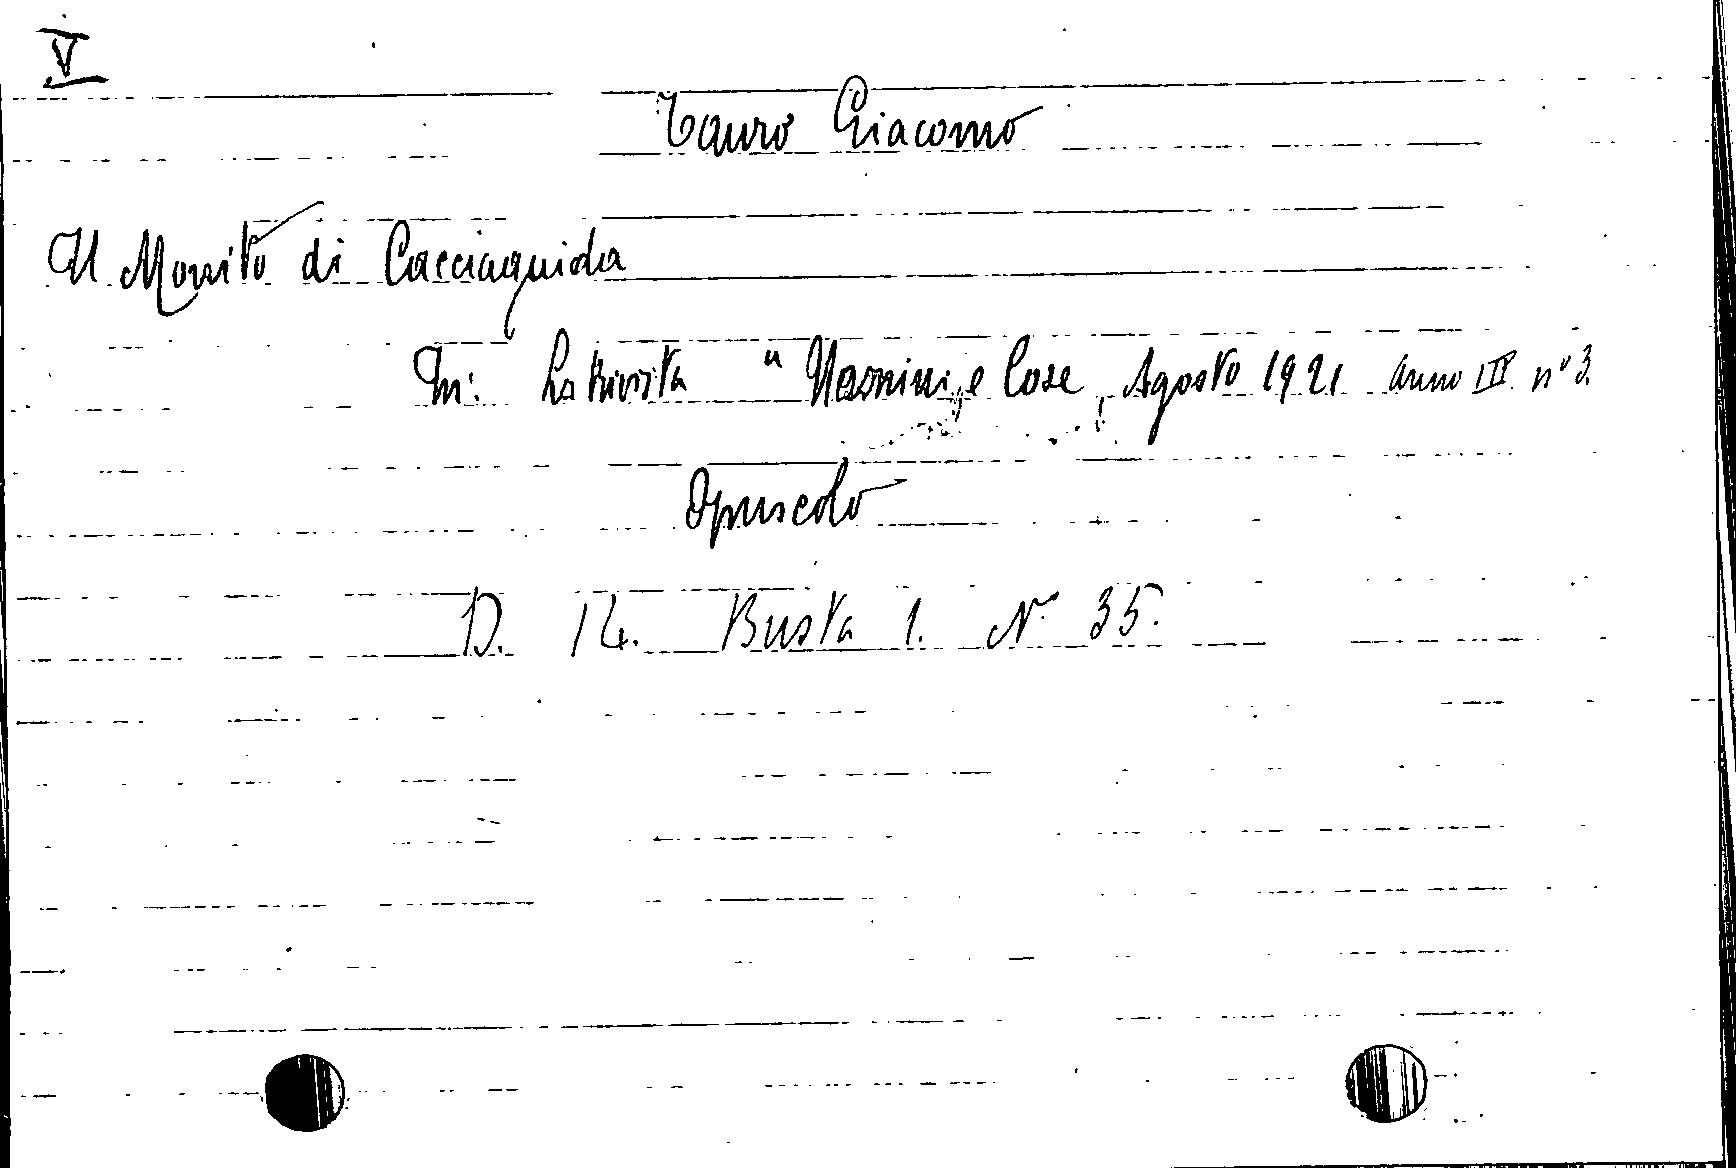 V
Tauro Giacomo
Il Monito di Cacciaguida
In: La Rivista " Uomini e Cose, Agosto 1921 anno III n° 3.
Opuscolo
D. 14. Busta 1. N° 35.